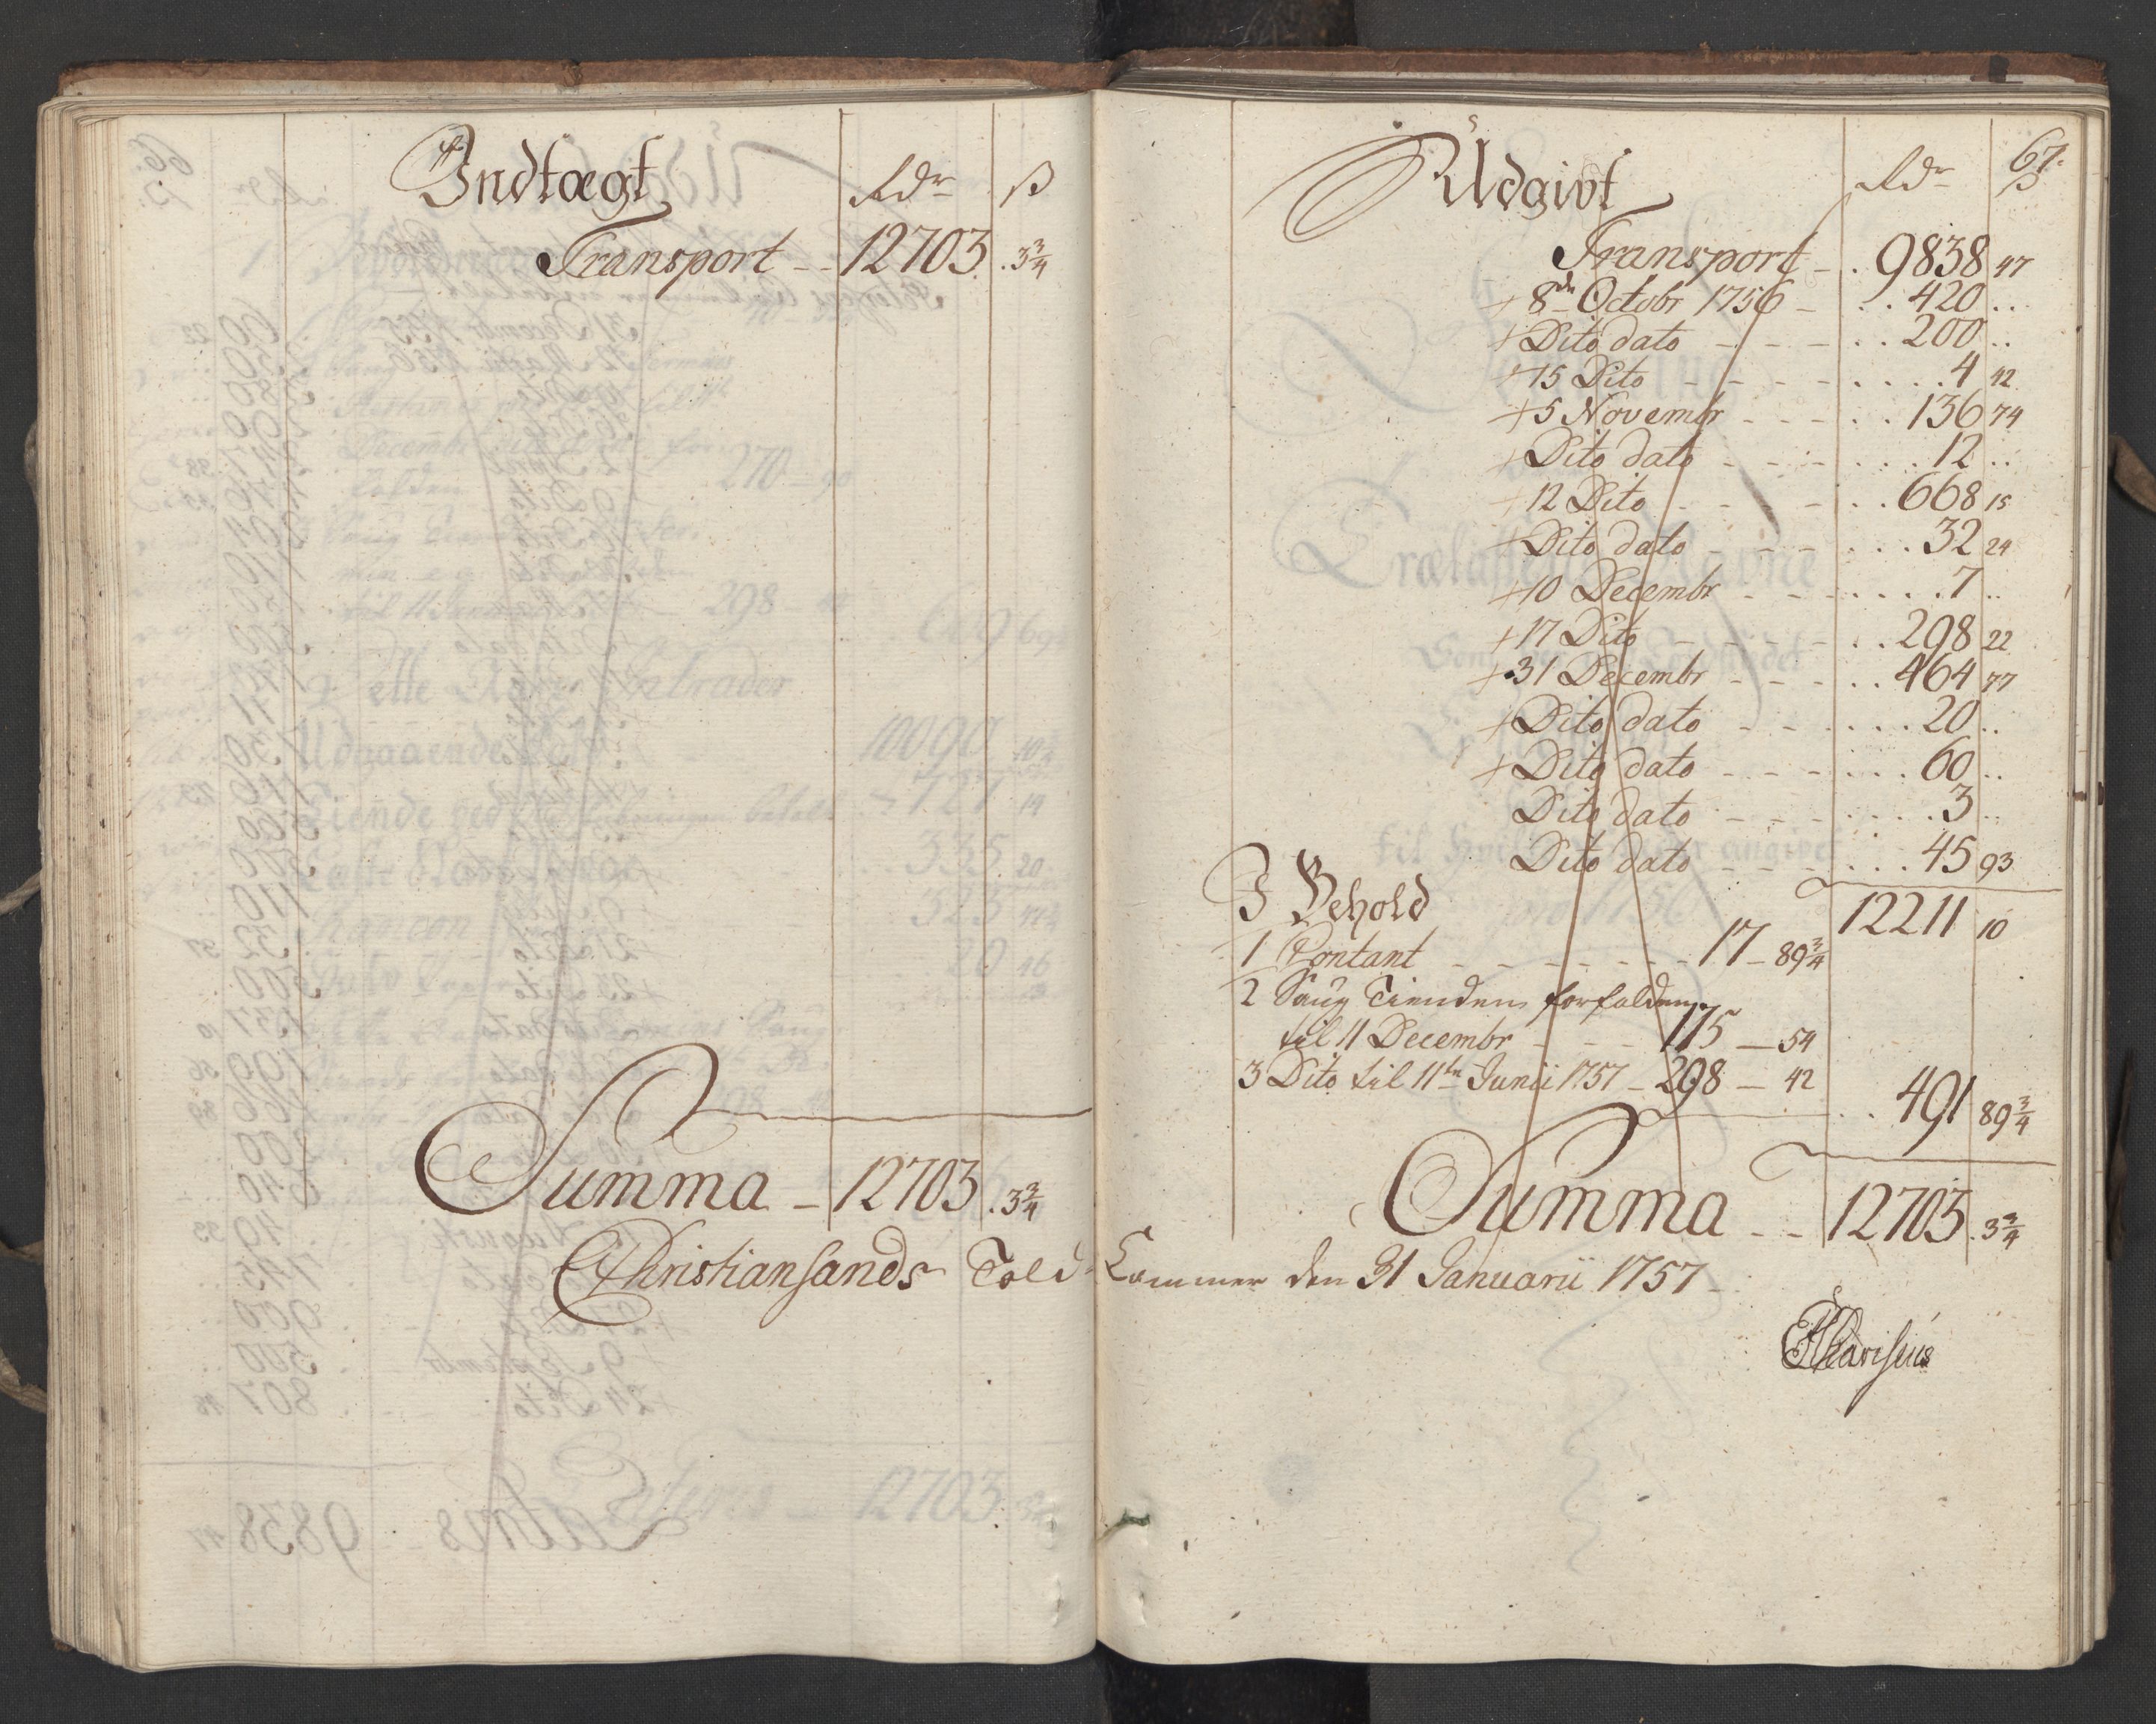 Indtægt Rdr ß
Transport 12703 . 3 3/4
Summa 12703 . 3 3/4
67.
Udgivt Rdr ß
Transport 9838 47
+ 8de Octobr 1756 420 ..
+ Dito dato 200 ..
+ 15 Dito 4 42
+ 5 Novembr 136 74
+ Dito dato 12 ..
+ 12 Dito 668 15
+ Dito dato 32 24
+ 10 Decembr 7 ..
+ 17 Dito 298 22
+ 31 Decembr 464 77
+ Dito dato 20 ..
+ Dito dato 60 ..
Dito dato 3 ..
Dito dato 45 93
12211 10
I Behold
1 Contant 17 - 89 3/4
2 Saug Tienden forfalden
til 11 Decembr 175 - 54
3 Dito til 11te Junii 1757 - 298 - 42
491 89 3/4
Summa 12703 . 3 3/4
Christiansands Told Cammer den 31 Januarii 1757